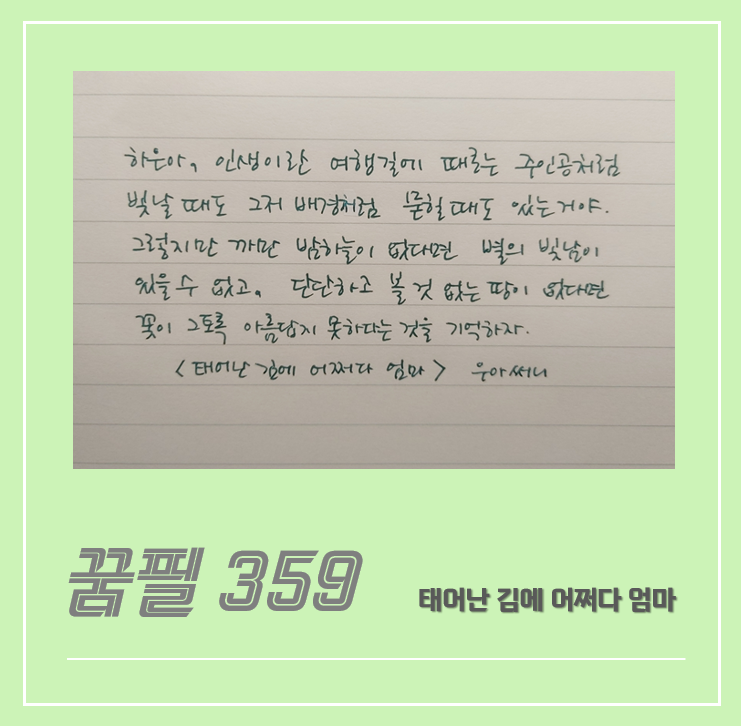 하은아, 인생이란 여행길에 때로는 주인공처럼
빛날 때도 그저 배경처럼 묻힐 때도 있는거야.
그렇지만 까만 밤하늘이 없다면 별의 빛남이
있을 수 없고, 단단하고 볼 것 없는 땅이 없다면
꽃이 그토록 아름답지 못하다는 것을 기억하자.
<태어난 김에 어쩌다 엄마> 우아써니
꿈필 359
태어난 김에 어쩌다 엄마